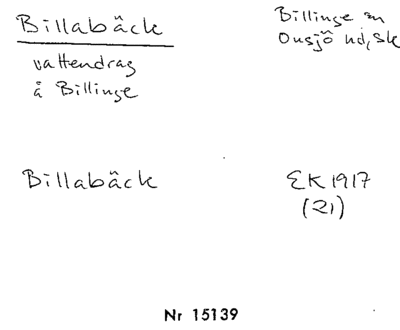 Billabäck
Billinge sn
Onsjö hd, Sk
vattendrag
å Billinge
Billabäck
EK 1917
(21)
Nr 15139